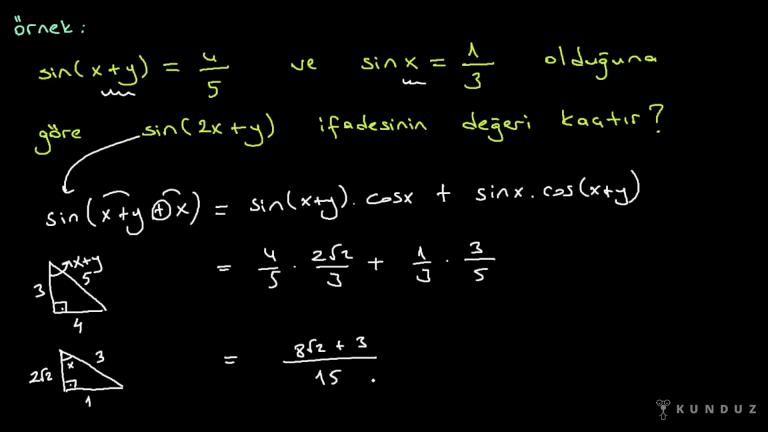 örnek:
sin(x+y) = 4/5 ve sinx = 1/3 olduğuna
göre sin(2x+y) ifadesinin değeri kaçtır?
sin(x+y+x) = sin(x+y).cosx + sinx.cos(x+y)
x+y
3 5
4
= 4/5 . 2√2/3 + 1/3 . 3/5
x 3
2√2
1
= 8√2 + 3/15.
KUNDUZ